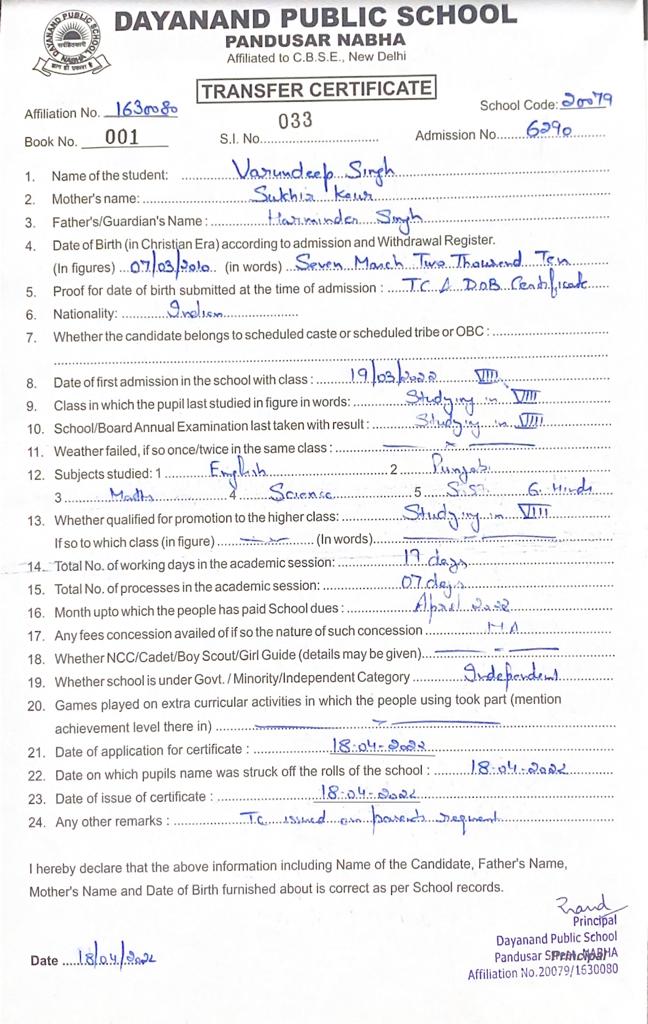 DAYANAND PUBLIC SCHOOL
PANDUSAR NABHA
Affiliated to C.B.S.E., New Delhi
DAYANAND PUBLIC SCHOOL
NABHA
TRANSFER CERTIFICATE
Affiliation No. 1630080 School Code: 20079
Book No. 001 S.I. No. 033 Admission No. 6290
1. Name of the student: Varundeep Singh
2. Mother's name: Sukhir Kaur
3. Father's/Guardian's Name : Harminder Singh
4. Date of Birth (in Christian Era) according to admission and Withdrawal Register.
(In figures) 07/03/2010 (in words) Seven March Two Thousand Ten
5. Proof for date of birth submitted at the time of admission : TC & DOB Certificate
6. Nationality: Indian
7. Whether the candidate belongs to scheduled caste or scheduled tribe or OBC :
8. Date of first admission in the school with class : 19/03/2022 VIII
9. Class in which the pupil last studied in figure in words: Studying in VIII
10. School/Board Annual Examination last taken with result : Studying in VIII
11. Weather failed, if so once/twice in the same class :
12. Subjects studied: 1 English 2 Punjabi
3 Maths 4 Science 5 S.St. 6. Hindi
13. Whether qualified for promotion to the higher class: Studying in VIII
If so to which class (in figure) (In words)
14. Total No. of working days in the academic session: 17 days
15. Total No. of processes in the academic session: 07 days
16. Month upto which the people has paid School dues : April 2022
17. Any fees concession availed of if so the nature of such concession NA
18. Whether NCC/Cadet/Boy Scout/Girl Guide (details may be given)
19. Whether school is under Govt. / Minority/Independent Category Independent
20. Games played on extra curricular activities in which the people using took part (mention
achievement level there in)
21. Date of application for certificate : 18-04-2022
22. Date on which pupils name was struck off the rolls of the school : 18-04-2022
23. Date of issue of certificate : 18-04-2022
24. Any other remarks : TC issued on parents request
I hereby declare that the above information including Name of the Candidate, Father's Name,
Mother's Name and Date of Birth furnished about is correct as per School records.
Principal
Dayanand Public School
Date 18/04/2022 Pandusar NABHA
Principal
Affiliation No.20079/1630080